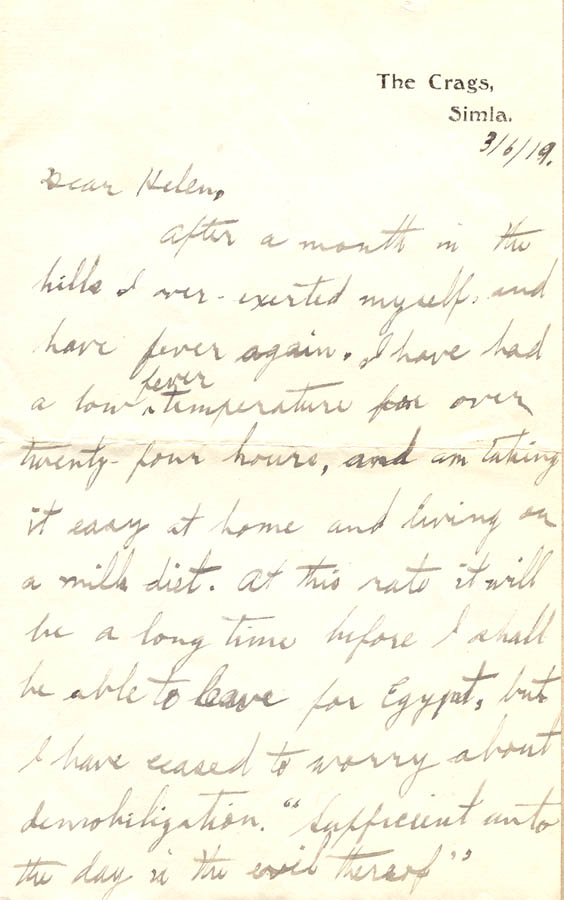 The Crags,
Simla.
3/6/19.
Dear Helen,
After a month in the
hills I over-exerted myself, and
have fever again. I have had
fever
a low temperature for over
twenty-four hours, and am taking
it easy at home and living on
a milk diet. At this rate it will
be a long time before I shall
be able to leave for Egypt, but
I have ceased to worry about
demobilization. "Sufficient unto
the day is the evil thereof"